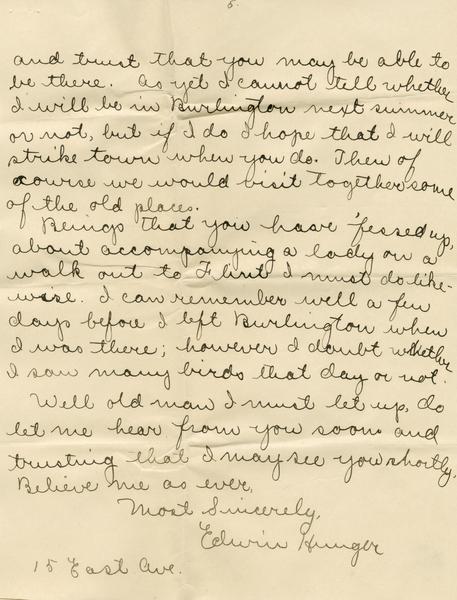 5.
and trust that you may be able to
be there. As yet I cannot tell whether
I will be in Burlington next summer
or not, but if I do I hope that I will
strike town when you do. Then of
course we would visit together some
of the old places.
Beings that you have 'fessed up,
about accompanying a lady on a
walk out to Flint I must do like-
wise. I can remember well a few
days before I left Burlington when
I was there; however I doubt whether
I saw many birds that day or not.
Well old man I must let up, do
let me hear from you soon and
trusting that I may see you shortly,
Believe me as ever,
Most Sincerely,
Edwin Hunger
15 East Ave.